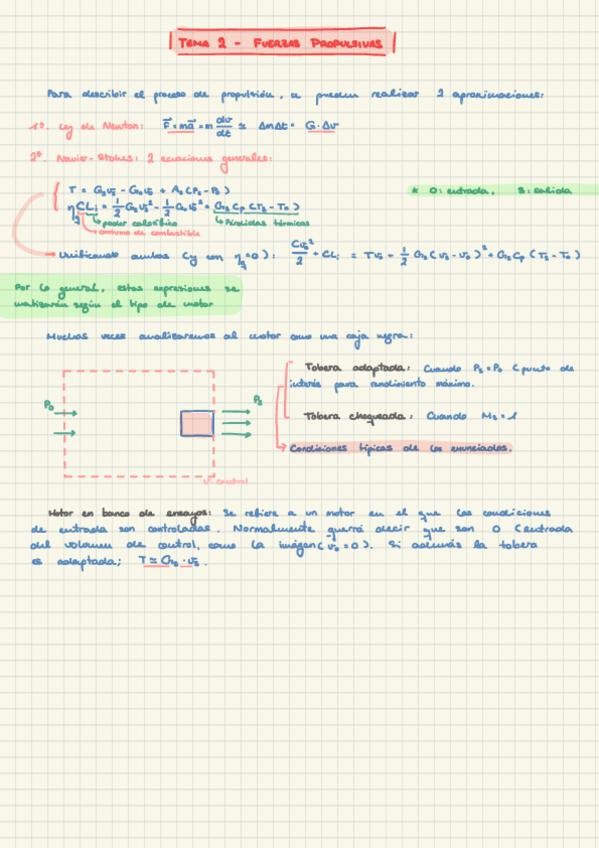 TEMA 2 - FUERZAS PROPULSIVAS
Para describir el proceso de propulsión, se pueden realizar 2 aproximaciones:
1º. Ley de Newton: F = ma = m dv/dt ≈ Δm Δt = G·Δv
2º. Navier-Stokes: 2 ecuaciones generales:
* 0: entrada, S: salida
poder calorífico
Pérdidas térmicas
consumo de combustible
Unificando ambas (y con
Por lo general, estas expresiones se
matizarán según el tipo de motor
Muchas veces analizaremos al motor como una caja negra:
Tobera adaptada: Cuando Ps = P0 (punto de
interés para rendimiento máximo.
P0
Ps
Tobera chequeada: Cuando Ms = 1
Condiciones típicas de los enunciados.
Vº control
Motor en banco de ensayos: Se refiere a un motor en el que las condiciones
de entrada son controladas. Normalmente querrá decir que son 0 (entrada
del volumen de control, como la imágen (v0 = 0). Si además la tobera
es adaptada;